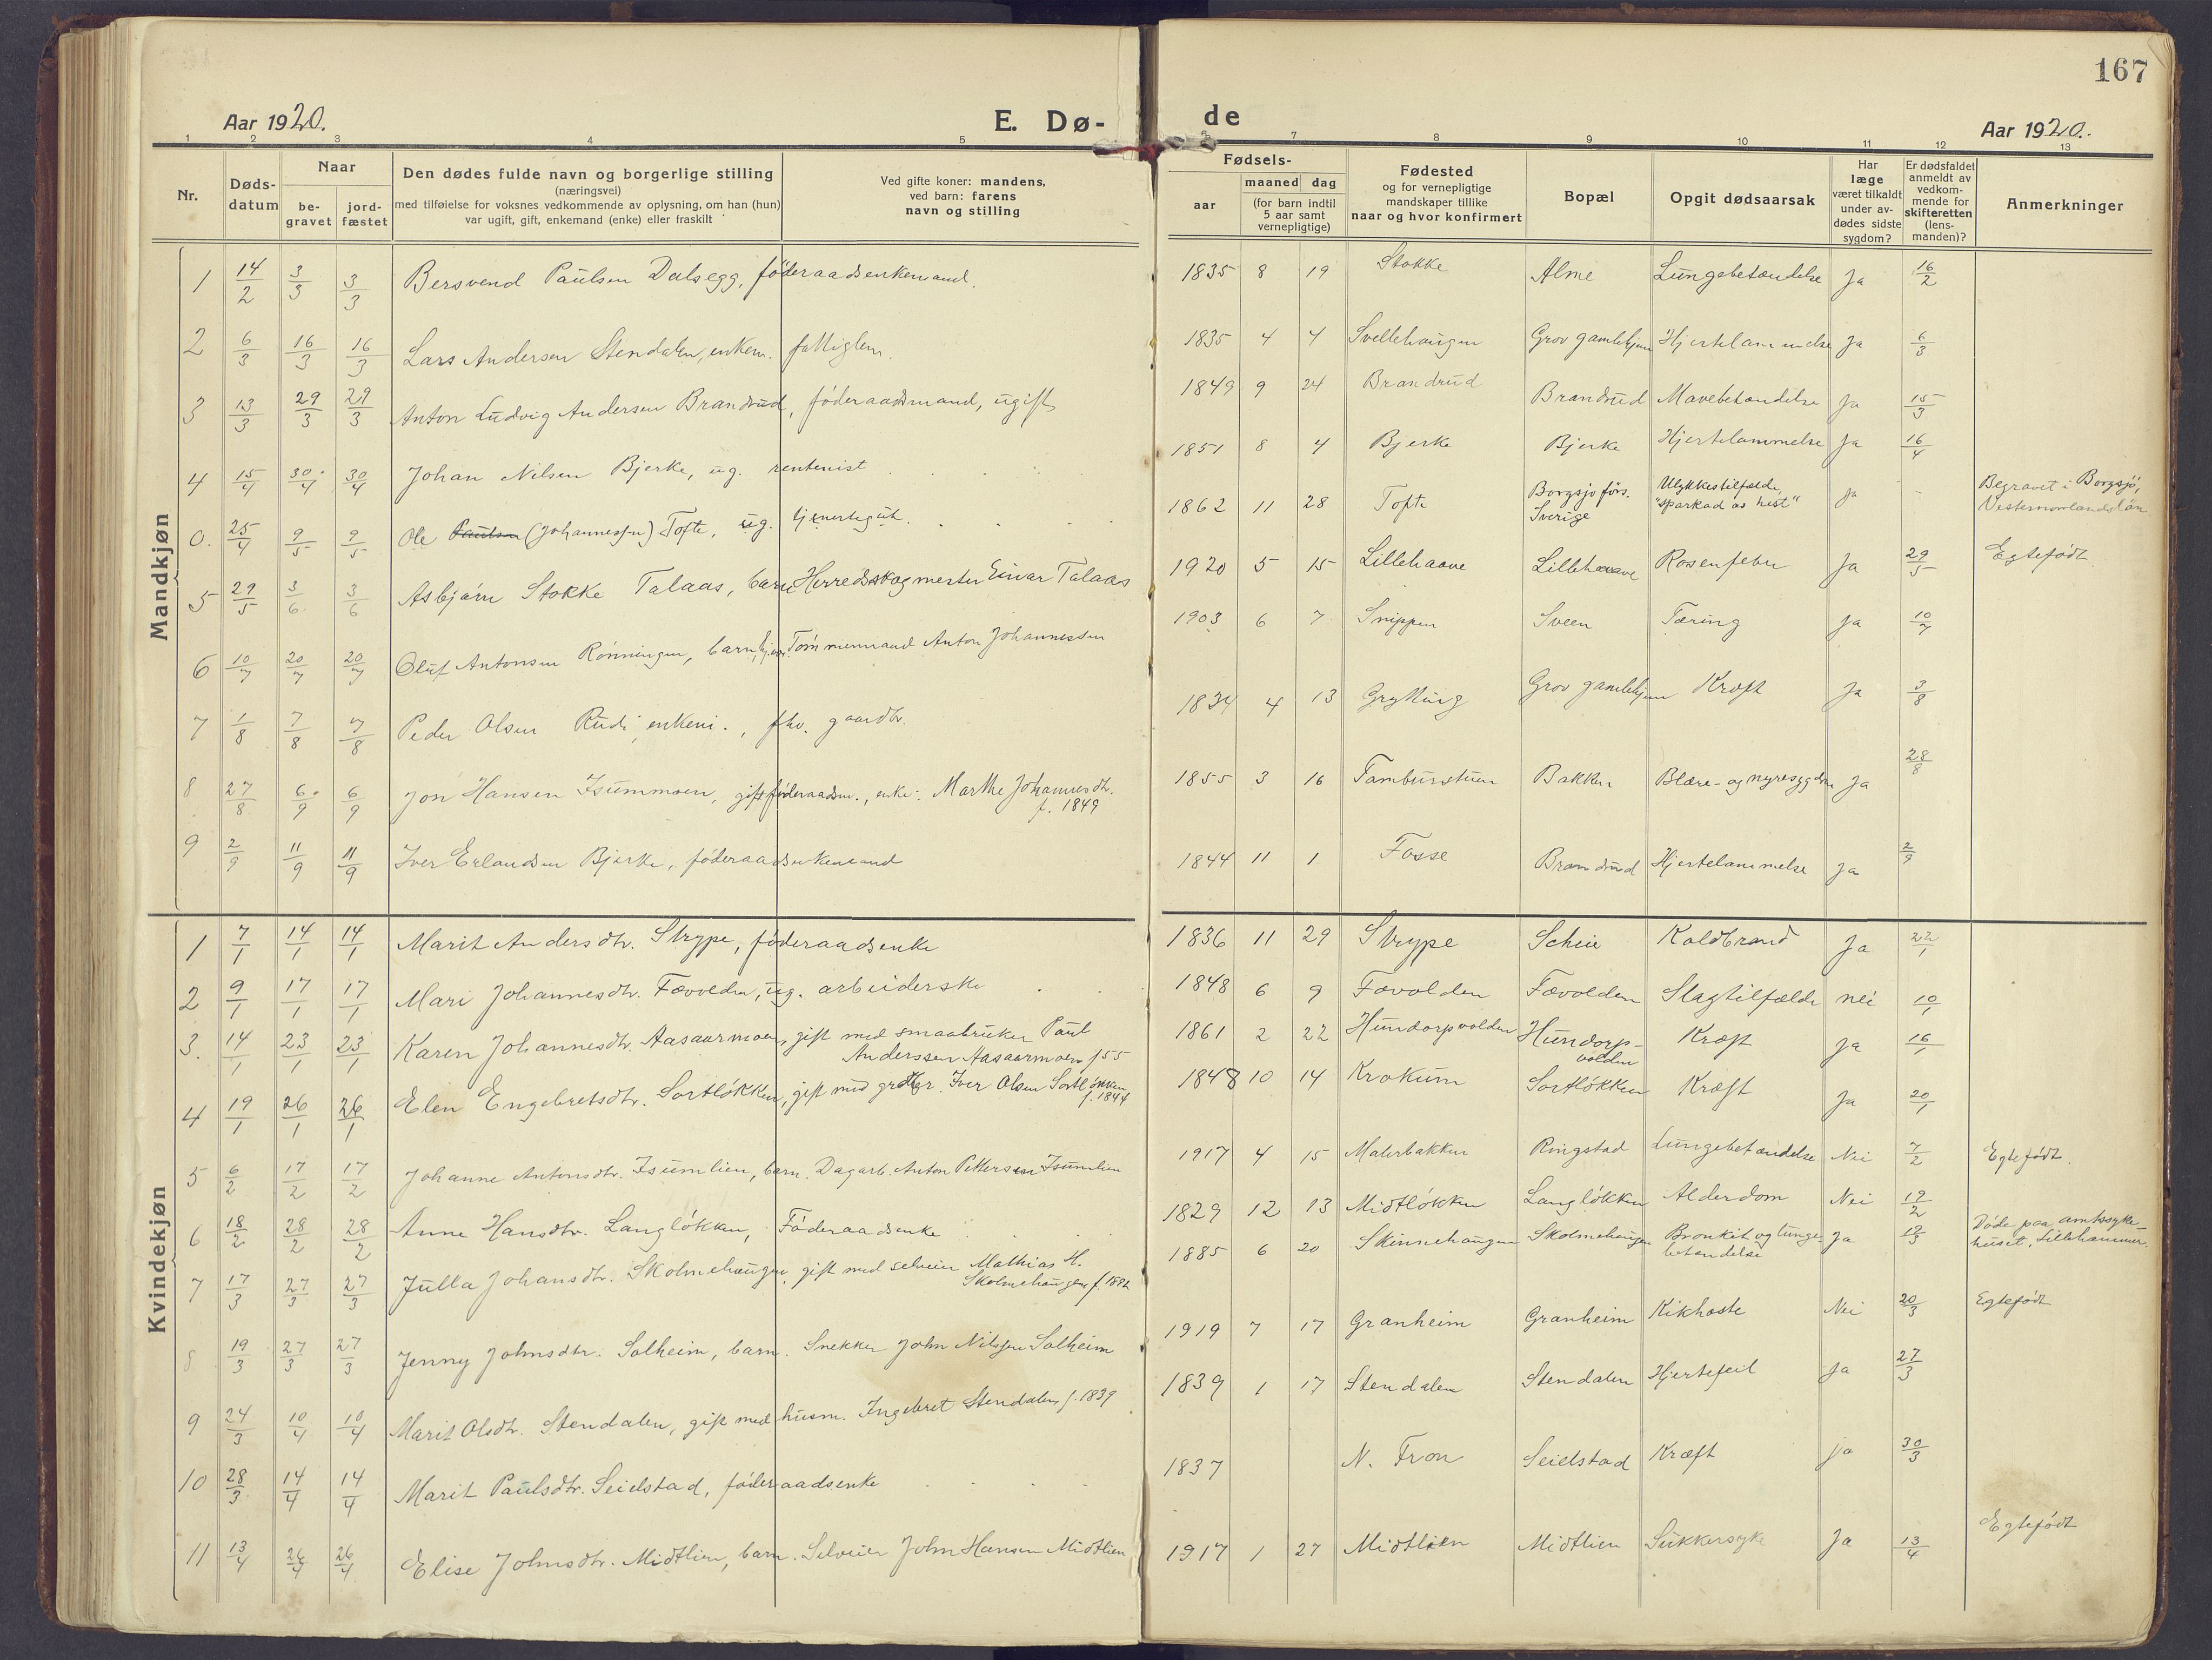 167
Aar 1920. E. Dø- de Aar 1920.
1 2 3 4 5 6 7 8 9 10 11 12 13
Nr.
Døds-datum
Naar
be-gravet
jord-fæstet
Den dødes fulde navn og borgerlige stilling
(næringsvei)
med tilføielse for voksnes vedkommende av oplysning, om han (hun)
var ugift, gift, enkemand (enke) eller fraskilt
Ved gifte koner: mandens,
ved barn: farens
navn og stilling
Fødsels-
aar
maaned dag
(for barn indtil
5 aar samt
vernepligtige)
Fødested
og for vernepligtige
mandskaper tillike
naar og hvor konfirmert
Bopæl
Opgit dødsaarsak
Har
læge
været tilkaldt
under av-
dødes sidste
sygdom?
Er dødsfaldet
anmeldt av
vedkom-
mende for
skifteretten
(lens-
manden)?
Anmerkninger
Mandkjøn
1 14/2 3/3 3/3 Bersvend Paulsen Dalsegg, föderaadsenkemand. 1835 8 19 Stokke Alme Lungebetændelse Ja 16/2
2 6/3 16/3 16/3 Lars Andersen Stendalen, enkem. fattiglem. 1835 4 4 Svellehaugen Grov gamlehjem Hjertelammelse Ja 6/3
3 13/3 29/3 29/3 Anton Ludvig Andersen Brandrud, föderaadsmand, ugift 1849 9 24 Brandrud Brandrud Mavebetændelse Ja 15/3
4 15/4 30/4 30/4 Johan Nilsen Bjerke, ug. rentenist 1851 8 4 Bjerke Bjerke Hjertelammelse Ja 16/4
0. 25/4 9/5 9/5 Ole Paulsen (Johannessen) Tofte, ug. tjenestegut. 1862 11 28 Tofte Borgsjo förs. Sverige Ulykkestilfælde, "sparkad as hest" Ja - Begravet i Borgsjö, Vesternorrlandslän
5 29/5 3/6 3/6 Asbjørn Stokke Talaas, barn Herredsskogmester Einar Talaas 1920 5 15 Lillehaave Lillehaave Rosenfeber Ja 29/5 Egtefødt.
6 10/7 20/7 20/7 Oluf Antonsen Rönningen, barn, Tömmermand Anton Johannessen 1903 6 7 Snippen Sveen Tæring Ja 10/7
7 1/8 7/8 7/8 Peder Olsen Rudi, enkem., fhv. gaardbr. 1834 4 13 Grytting Grov gamlehjem Kræft Ja 3/8
8 27/8 6/9 6/9 Jon Hansen Isummoen, gift föderaadsm., enke: Marthe Johannesdtr. f. 1849 1855 3 16 Tamburstuen Bakken Blære- og nyresygdom Ja 28/8
9 2/9 11/9 11/9 Iver Erlandsen Bjerke, föderaadsenkemand 1844 11 1 Fosse Brandrud Hjertelammelse Ja 2/9
Kvindekjøn
1 7/1 14/1 14/1 Marit Andersdtr. Strype, föderaadsenke 1836 11 29 Strype Scheie Koldbrand Ja 22/1
2 9/1 17/1 17/1 Mari Johannesdtr. Fævolden, ug. arbeiderske 1848 6 9 Fævolden Fævolden Slagtilfælde nei 10/1
3. 14/1 23/1 23/1 Karen Johannesdtr. Aasaarmoen, gift med smaabruker Paul Anderssen Aasaarmoen f 55 1861 2 22 Hundorpvolden Hundorp-volden Kræft Ja 16/1
4 19/1 26/1 26/1 Elen Engebretsdtr. Sortlökken, gift med grdbr. Iver Olsen Sortlökken f. 1844 1848 10 14 Krokum Sortlökken Kræft Ja 20/1
5 6/2 17/2 17/2 Johanne Antonsdtr. Isumlien, barn. Dagarb. Anton Pettersen Isumlien 1917 4 15 Malerbakken Ringstad Lungebetændelse Nei 7/2 Egtefødt.
6 18/2 28/2 28/2 Anne Hansdtr. Langlökken, Föderaadsenke 1829 12 13 Midtlökken Langlökken Alderdom Nei 19/2
7 17/3 27/3 27/3 Julla Johansdtr. Skolmehaugen, gift med selveier Mathias H. Skolmehaugen f. 1882 1885 6 20 Skinnehaugen Skolmehaugen Bronkit og lungebetændelse Ja 19/3 Døde paa amtssyke-huset, Lillehammer.
8 19/3 27/3 27/3 Jenny Johnsdtr. Solheim, barn. Snekker John Nilssen Solheim 1919 7 17 Granheim Granheim Kikhoste Nei 20/3 Egtefødt
9 24/3 10/4 10/4 Marit Olsdtr. Stendalen, gift med husm. Ingebret Stendalen f. 1839 1839 1 17 Stendalen Stendalen Hjertefeil Ja 27/3
10 28/3 14/4 14/4 Marit Paulsdtr. Seielstad, föderaadsenke 1837 N. Fron Seielstad Kræft ja 30/3
11 13/4 26/4 26/4 Elise Johnsdtr. Midtlien, barn. Selveier John Hansen Midtlien 1917 1 27 Midtlien Midtlien Sukkersyke Ja 13/4 Egtefødt